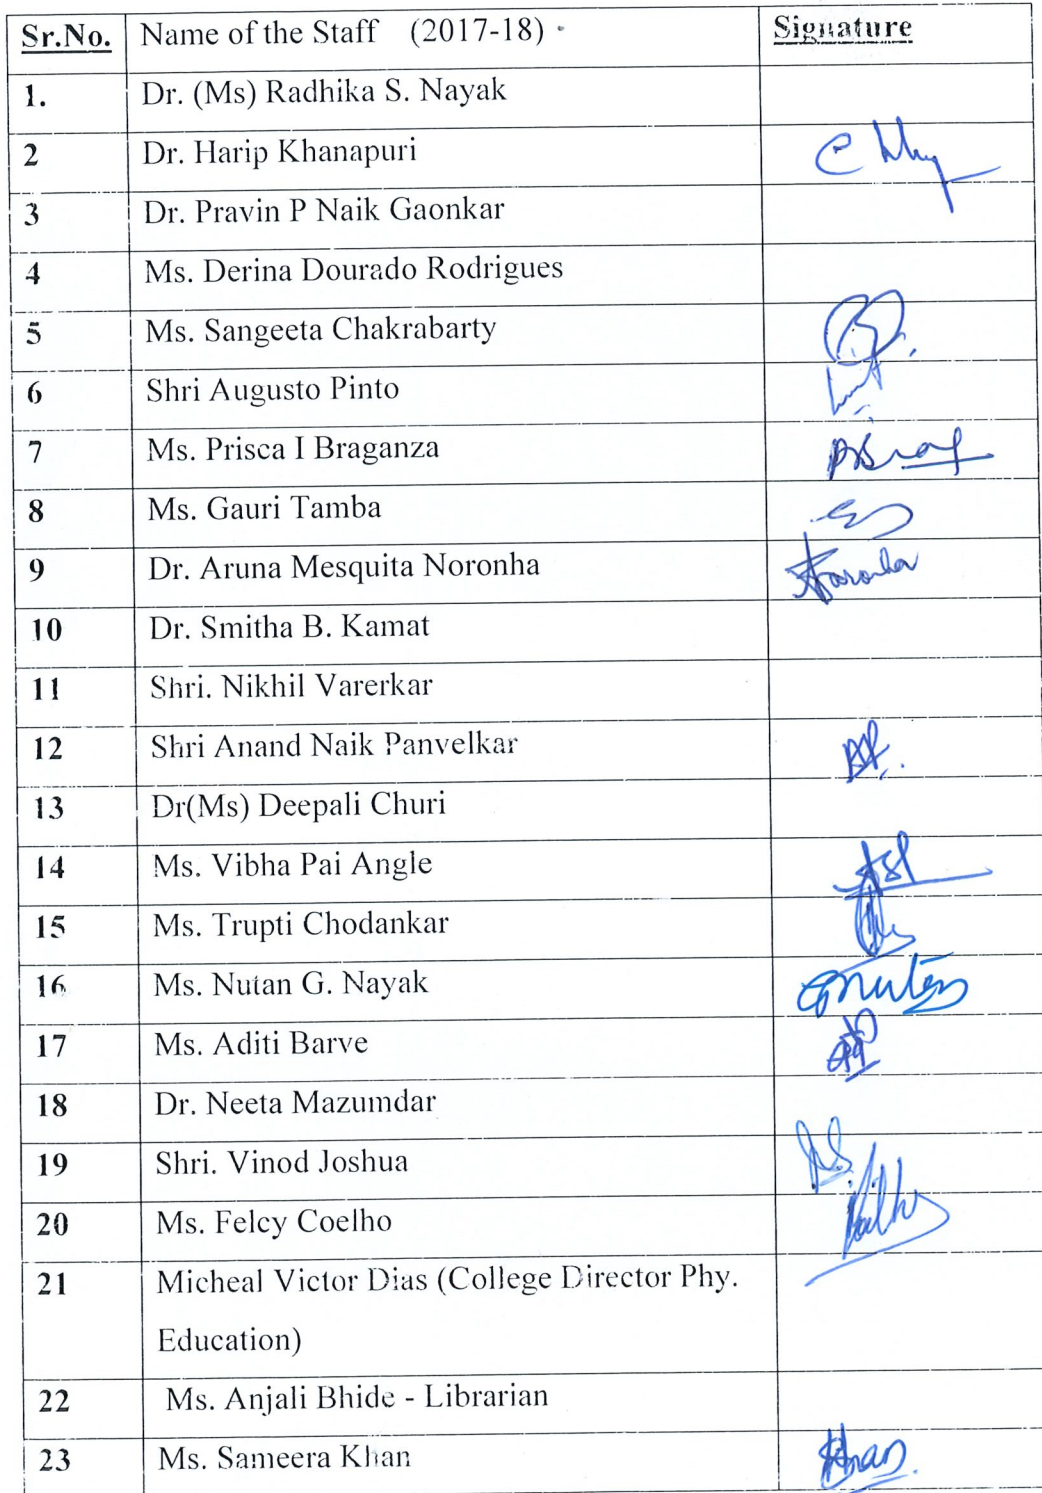 Sr.No. Name of the Staff (2017-18) Signature
1. Dr. (Ms) Radhika S. Nayak
2 Dr. Harip Khanapuri
3 Dr. Pravin P Naik Gaonkar
4 Ms. Derina Dourado Rodrigues
5 Ms. Sangeeta Chakrabarty
6 Shri Augusto Pinto
7 Ms. Prisca I Braganza
8 Ms. Gauri Tamba
9 Dr. Aruna Mesquita Noronha
10 Dr. Smitha B. Kamat
11 Shri. Nikhil Varerkar
12 Shri Anand Naik Panvelkar
13 Dr(Ms) Deepali Churi
14 Ms. Vibha Pai Angle
15 Ms. Trupti Chodankar
16 Ms. Nutan G. Nayak
17 Ms. Aditi Barve
18 Dr. Neeta Mazumdar
19 Shri. Vinod Joshua
20 Ms. Felcy Coelho
21 Micheal Victor Dias (College Director Phy.
Education)
22 Ms. Anjali Bhide - Librarian
23 Ms. Sameera Khan